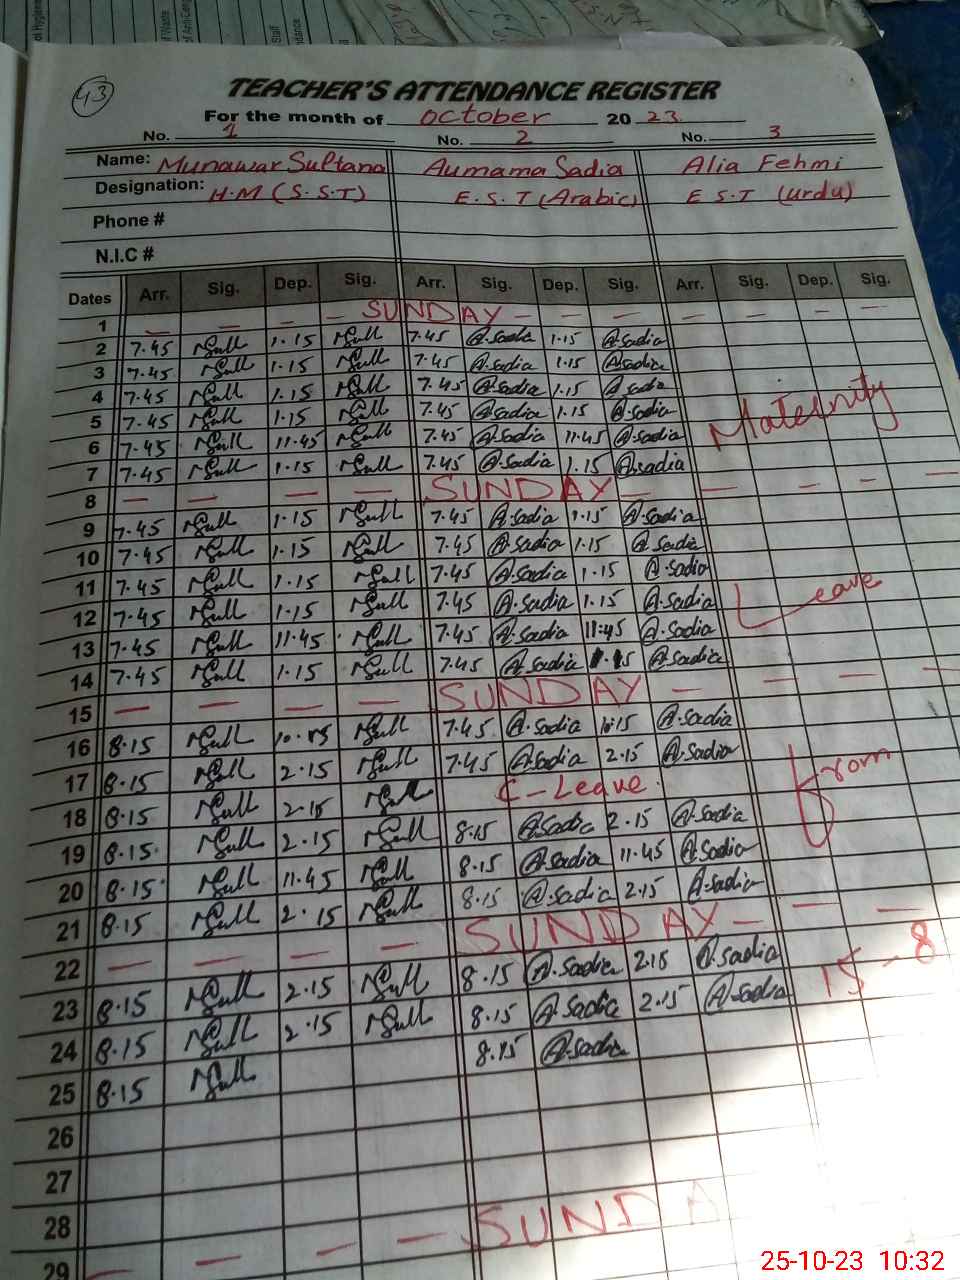 43
TEACHER'S ATTENDANCE REGISTER
For the month of October 2023
No. 1 No. 2 No. 3
Name: Munawar Sultana Aumama Sadia Alia Fehmi
Designation: H.M (S.S.T) E.S.T (Arabic) E S.T (Urdu)
Phone #
N.I.C #
Dates Arr. Sig. Dep. Sig. Arr. Sig. Dep. Sig. Arr. Sig. Dep. Sig.
1 — — — — SUNDAY — — — — — — —
2 7.45 1.15 7.45 A.Sadia 1.15 A.Sadia
3 7.45 1.15 7.45 A.Sadia 1.15 A.Sadia
4 7.45 1.15 7.45 A.Sadia 1.15 A.Sadia
5 7.45 1.15 7.45 A.Sadia 1.15 A.Sadia Maternity
6 7.45 11.45 7.45 A.Sadia 11.45 A.Sadia
7 7.45 1.15 7.45 A.Sadia 1.15 A.Sadia
8 — — — — SUNDAY — — — — —
9 7.45 1.15 7.45 A.Sadia 1.15 A.Sadia
10 7.45 1.15 7.45 A.Sadia 1.15 A.Sadia
11 7.45 1.15 7.45 A.Sadia 1.15 A.Sadia
12 7.45 1.15 7.45 A.Sadia 1.15 A.Sadia Leave
13 7.45 11.45 7.45 A.Sadia 11.45 A.Sadia
14 7.45 1.15 7.45 A.Sadia 1.15 A.Sadia
15 — — — — SUNDAY — — — —
16 8.15 7.45 A.Sadia A.Sadia
17 8.15 2.15 7.45 A.Sadia 2.15 A.Sadia From
18 8.15 2.15 C-Leave.
19 8.15 2.15 8.15 A.Sadia 2.15 A.Sadia
20 8.15 11.45 8.15 A.Sadia 11.45 A.Sadia
21 8.15 2.15 8.15 A.Sadia 2.15 A.Sadia
22 — — — — SUNDAY — — —
23 8.15 2.15 8.15 A.Sadia 2.15 A.Sadia 15-8
24 8.15 2.15 8.15 A.Sadia 2.15 A.Sadia
25 8.15 8.15 A.Sadia
26
27
28
29 — — — — SUNDA
25-10-23 10:32